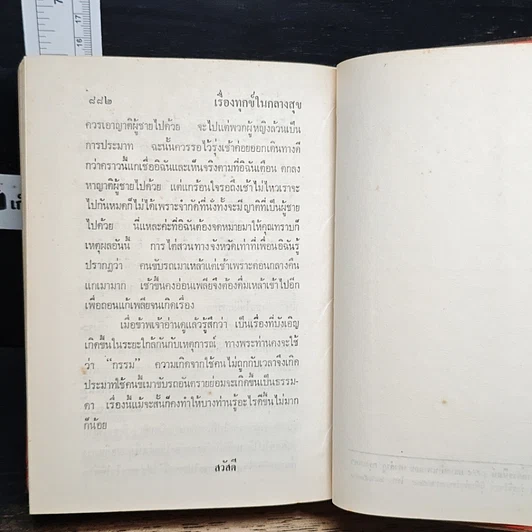 ๘๘๒ เรื่องทุกข์ในกลางสุข
ควรเอาญาติผู้ชายไปด้วย จะไปแต่พวกผู้หญิงล้วนเป็น
การประมาท ฉะนั้นควรรอไว้รุ่งเช้าค่อยออกเดินทางดี
กว่าคราวนี้แกเชื่ออิฉันและเห็นจริงตามที่อิฉันเตือน ตกลง
หาญาติผู้ชายไปด้วย แต่แกร้อนใจรอถึงเช้าไม่ไหวเราจะ
ไปกันหมดก็ไม่ได้เพราะจำกัดที่นั่งทั้งจะมีญาติที่เป็นผู้ชาย
ไปด้วย นี่แหละค่ะที่อิฉันต้องจดหมายมาให้คุณทราบก็
เหตุผลอันนี้ การไต่สวนทางจังหวัดเท่าที่เพื่อนอิฉันรู้
ปรากฏว่า คนขับรถเมาเหล้าแต่เช้าเพราะตอนกลางคืน
แกเมามาก เช้าขึ้นคงอ่อนเพลียจึงต้องดื่มเหล้าเข้าไปอีก
เพื่อถอนแก้เพลียจนเกิดเรื่อง
เมื่อข้าพเจ้าอ่านดูแล้วรู้สึกว่า เป็นเรื่องที่บังเอิญ
เกิดขึ้นในระยะใกล้กันกับเหตุการณ์ ทางพระท่านคงจะใช้
ว่า “กรรม” ความเกิดจากใช้คนไม่ถูกกับเวลาจึงเกิด
ประมาทใช้คนขี้เมาขับรถอันตรายย่อมจะเกิดขึ้นเป็นธรรม-
ดา เรื่องนี้แม้จะสั้นก็คงทำให้บางท่านรู้อะไรดีขึ้นไม่มาก
ก็น้อย
สวัสดี